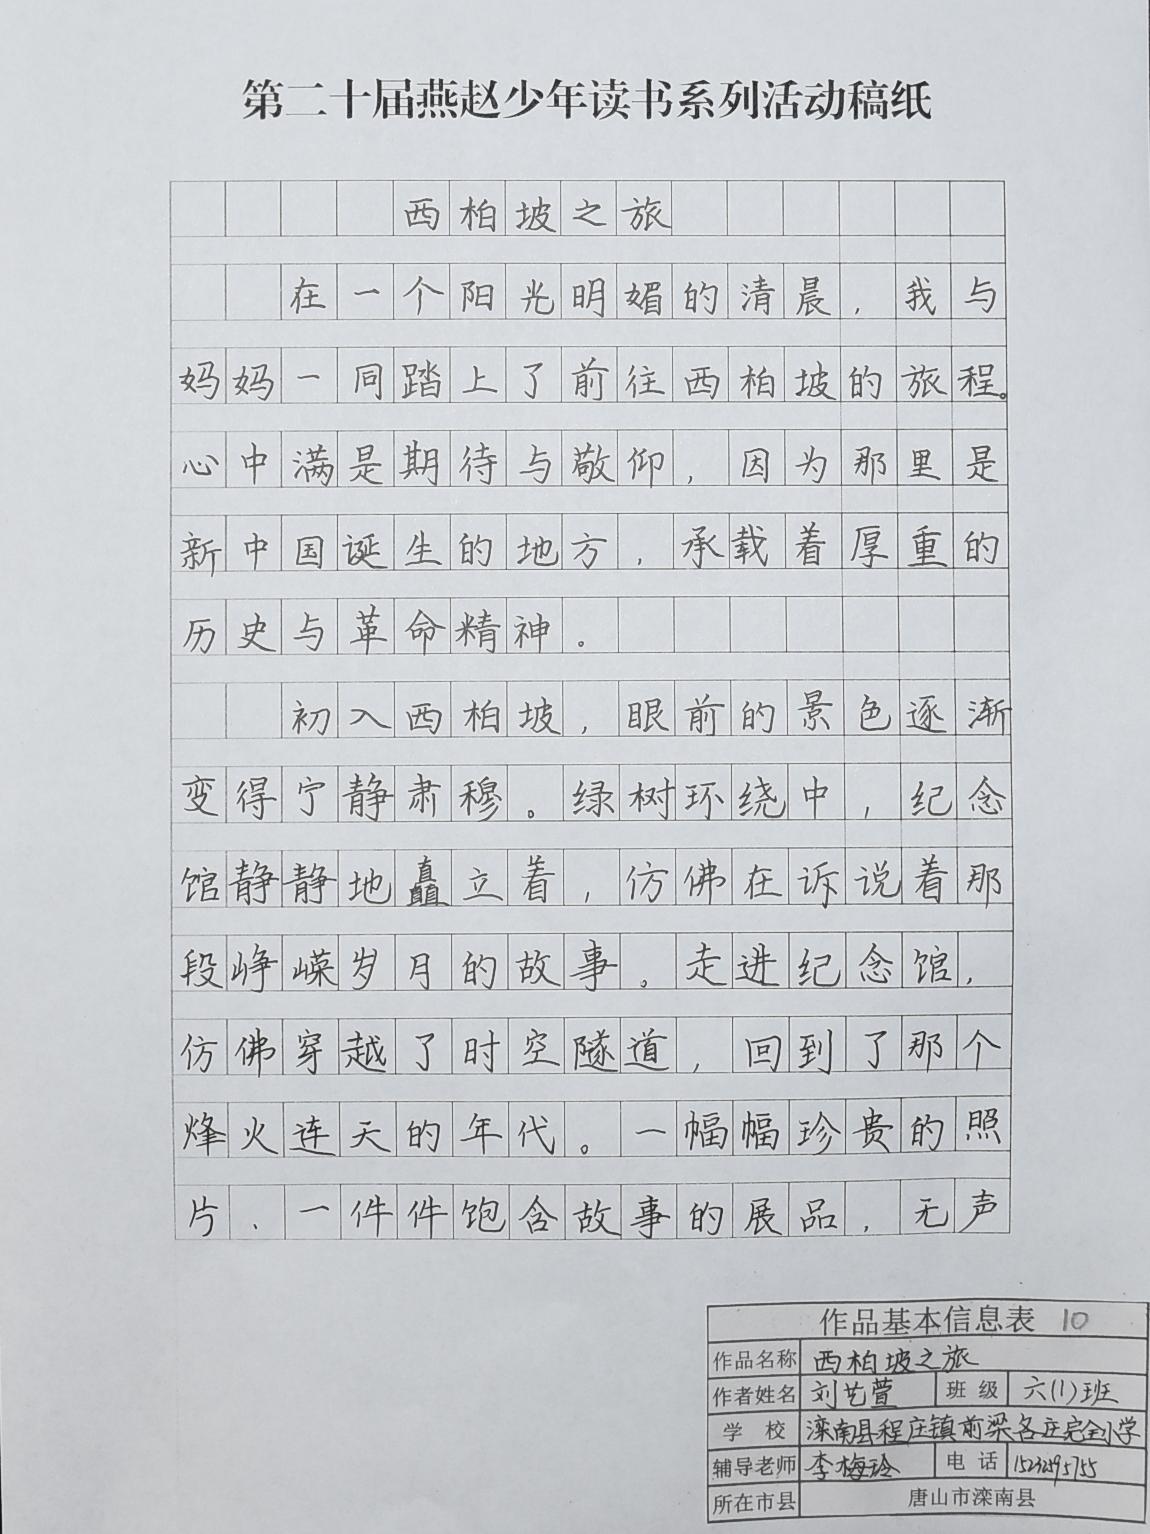 第二十届燕赵少年读书系列活动稿纸
西柏坡之旅
在一个阳光明媚的清晨，我与
妈妈一同踏上了前往西柏坡的旅程。
心中满是期待与敬仰，因为那里是
新中国诞生的地方，承载着厚重的
历史与革命精神。
初入西柏坡，眼前的景色逐渐
变得宁静肃穆。绿树环绕中，纪念
馆静静地矗立着，仿佛在诉说着那
段峥嵘岁月的故事。走进纪念馆，
仿佛穿越了时空隧道，回到了那个
烽火连天的年代。一幅幅珍贵的照
片、一件件饱含故事的展品，无声
作品基本信息表 10
作品名称 西柏坡之旅
作者姓名 刘艺萱 班级 六(1)班
学校 滦南县程庄镇前梁各庄完全小学
辅导老师 李梅玲 电话 15232595755
所在市县 唐山市滦南县